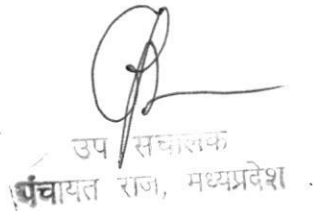 उप सचालक
पंचायत राज, मध्यप्रदेश .